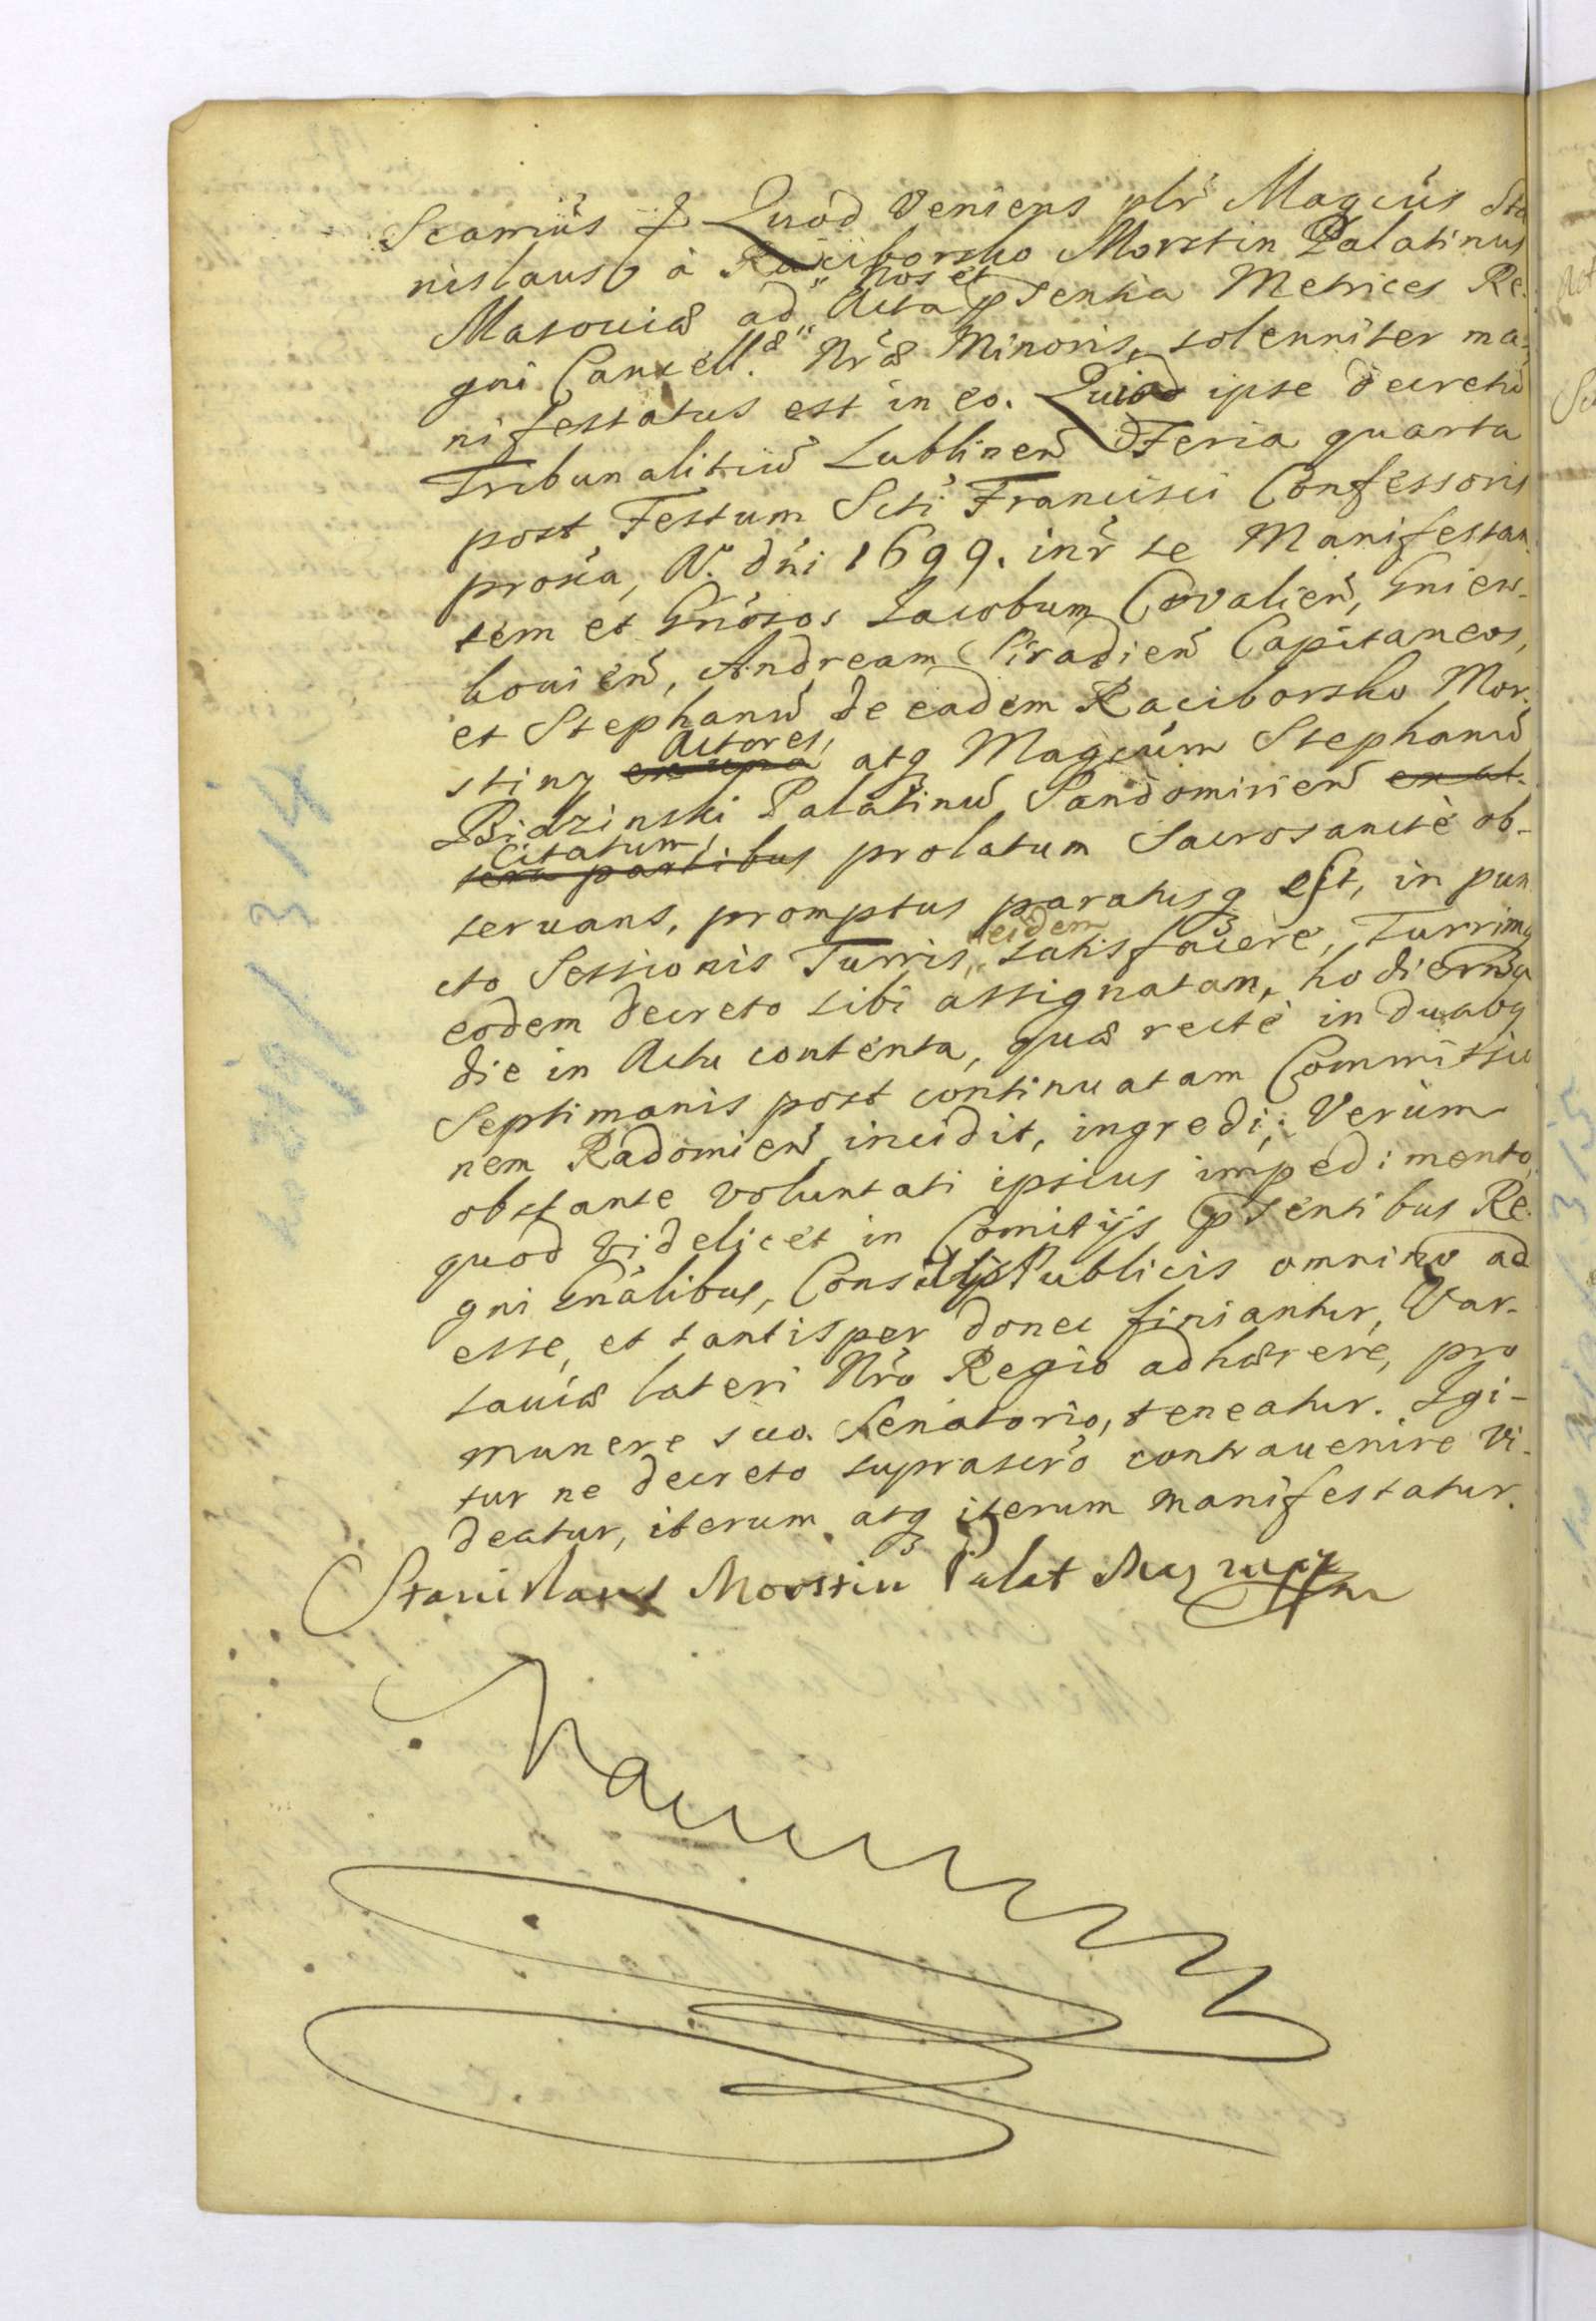 Quod Veniens plr Magcus Sta
nislaus à Raciborsko Morstin Palatinus
Masouiæ ad nos et Acta psentia Metrices Re.
gni Cancell. Nræ Minoris, solenniter ma,
nifestatus est in eo. Quiod ipse decretu
Tribunalitiu Lublinen Feria quarta
post Festum Scti Francisci Confessoris
proxa, Ao. dni 1699. inr se Manifestan
tem et Gnosos Jacobum Covalien, Gniew-
kouien, Andream Siradien Capitaneos,
et Stephanu de eadem Raciborsko Mor.
stiny Actores, atq Magcum Stephanu
Bidzinski Palatinu Sandomirien
Citatum, prolatum Sacrosanctè ob-
seruans, promptus paratusq est, in pun
cto Sessionis Turris, eidem satisfacere, Turrimq
eodem decreto sibi assignatam, hodierna
die in Actu contenta, quæ rectè in duabq
Septimanis post continuatam Commissio
nem Radomien incidit, ingredi; Verùm
obstante voluntati ipsius impedimento,
quod videlicet in Comitijs psentibus Re.
gni Gnalibus, Consilijs Publicis omnino ad
esse, et tantisper donec finiantur, Var-
sauiæ lateri Nro Regio adhærere, pro
munere suo Senatorio, teneatur. Igi-
tur ne decreto suprascro contrauenire vi-
deatur, iterum atq iterum manifestatur.
Stanislaus Morstin Palat Maz